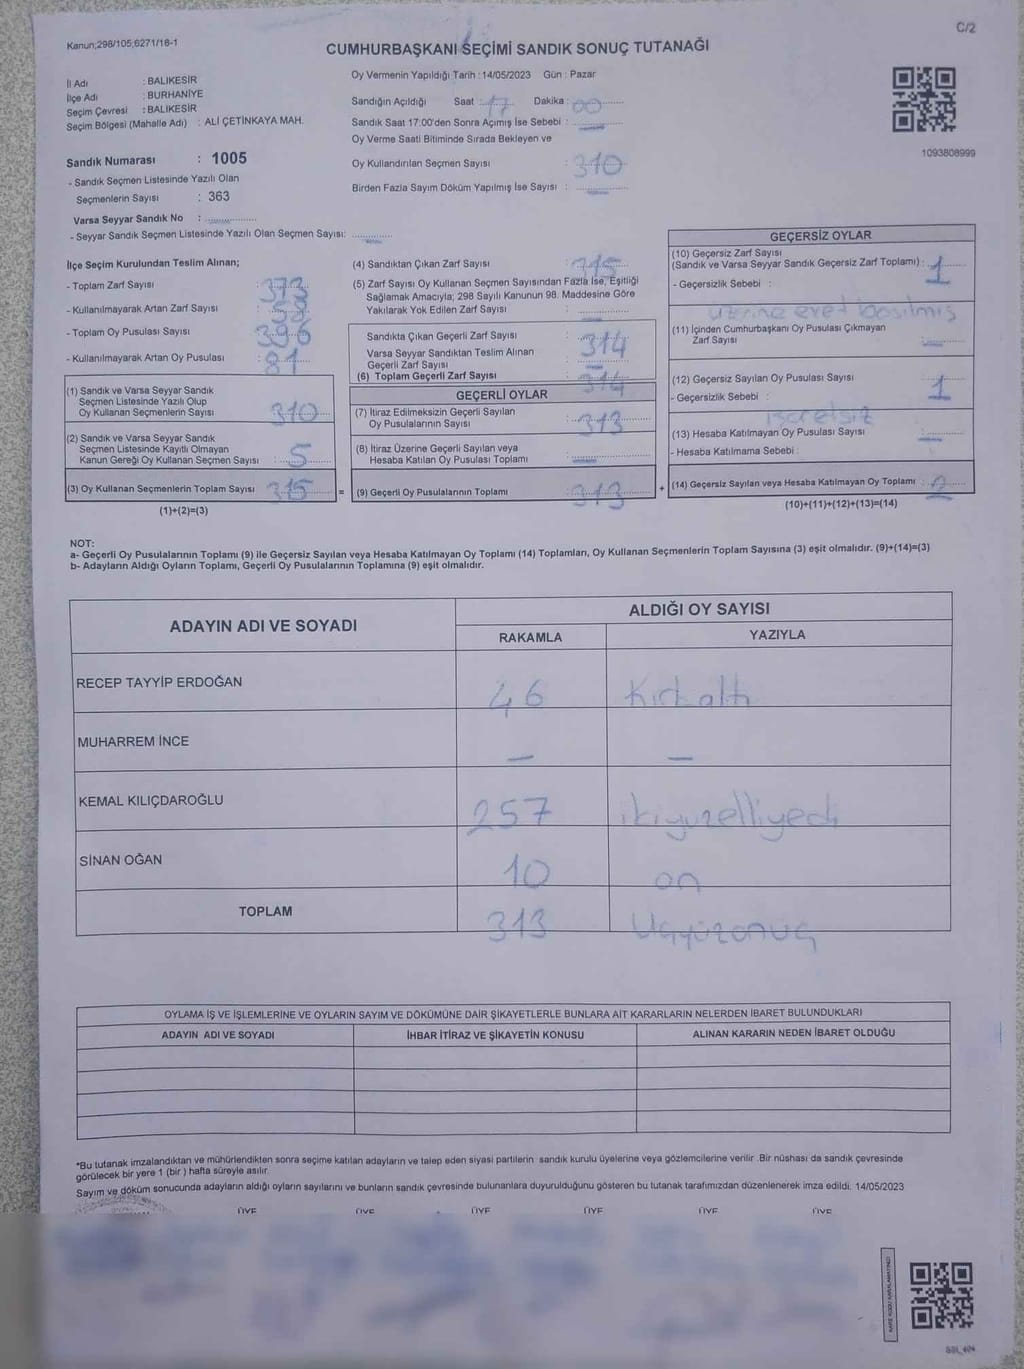 C/2
Kanun;298/105;6271/18-1
CUMHURBAŞKANI SEÇİMİ SANDIK SONUÇ TUTANAĞI
İl Adı : BALIKESİR
İlçe Adı : BURHANİYE
Seçim Çevresi : BALIKESİR
Seçim Bölgesi (Mahalle Adı) : ALİ ÇETİNKAYA MAH.
Sandık Numarası : 1005
- Sandık Seçmen Listesinde Yazılı Olan
Seçmenlerin Sayısı : 363
Varsa Seyyar Sandık No :
- Seyyar Sandık Seçmen Listesinde Yazılı Olan Seçmen Sayısı:
Oy Vermenin Yapıldığı Tarih : 14/05/2023 Gün : Pazar
Sandığın Açıldığı Saat : 17 Dakika : 00
Sandık Saat 17:00'den Sonra Açılmış İse Sebebi :
Oy Verme Saati Bitiminde Sırada Bekleyen ve
Oy Kullandırılan Seçmen Sayısı : 310
Birden Fazla Sayım Döküm Yapılmış İse Sayısı :
1093808999
İlçe Seçim Kurulundan Teslim Alınan;
- Toplam Zarf Sayısı : 373
- Kullanılmayarak Artan Zarf Sayısı :
- Toplam Oy Pusulası Sayısı : 396
- Kullanılmayarak Artan Oy Pusulası : 81
(1) Sandık ve Varsa Seyyar Sandık
Seçmen Listesinde Yazılı Olup
Oy Kullanan Seçmenlerin Sayısı : 310
(2) Sandık ve Varsa Seyyar Sandık
Seçmen Listesinde Kayıtlı Olmayan
Kanun Gereği Oy Kullanan Seçmen Sayısı : 5
(3) Oy Kullanan Seçmenlerin Toplam Sayısı : 315
(1)+(2)=(3)
(4) Sandıktan Çıkan Zarf Sayısı : 315
(5) Zarf Sayısı Oy Kullanan Seçmen Sayısından Fazla İse, Eşitliği
Sağlamak Amacıyla; 298 Sayılı Kanunun 98. Maddesine Göre
Yakılarak Yok Edilen Zarf Sayısı :
Sandıkta Çıkan Geçerli Zarf Sayısı : 314
Varsa Seyyar Sandıktan Teslim Alınan
Geçerli Zarf Sayısı :
(6) Toplam Geçerli Zarf Sayısı : 314
GEÇERLİ OYLAR
(7) İtiraz Edilmeksizin Geçerli Sayılan
Oy Pusulalarının Sayısı : 313
(8) İtiraz Üzerine Geçerli Sayılan veya
Hesaba Katılan Oy Pusulası Toplamı :
= (9) Geçerli Oy Pusulalarının Toplamı : 313 +
GEÇERSİZ OYLAR
(10) Geçersiz Zarf Sayısı
(Sandık ve Varsa Seyyar Sandık Geçersiz Zarf Toplamı) : 1
- Geçersizlik Sebebi :
üzerine evet basılmış
(11) İçinden Cumhurbaşkanı Oy Pusulası Çıkmayan
Zarf Sayısı : —
(12) Geçersiz Sayılan Oy Pusulası Sayısı : 1
- Geçersizlik Sebebi :
işaretsiz
(13) Hesaba Katılmayan Oy Pusulası Sayısı : —
- Hesaba Katılmama Sebebi :
(14) Geçersiz Sayılan veya Hesaba Katılmayan Oy Toplamı : 2
(10)+(11)+(12)+(13)=(14)
NOT:
a- Geçerli Oy Pusulalarının Toplamı (9) ile Geçersiz Sayılan veya Hesaba Katılmayan Oy Toplamı (14) Toplamları, Oy Kullanan Seçmenlerin Toplam Sayısına (3) eşit olmalıdır. (9)+(14)=(3)
b- Adayların Aldığı Oyların Toplamı, Geçerli Oy Pusulalarının Toplamına (9) eşit olmalıdır.
ADAYIN ADI VE SOYADI
ALDIĞI OY SAYISI
RAKAMLA YAZIYLA
RECEP TAYYİP ERDOĞAN 46 Kırkaltı
MUHARREM İNCE — —
KEMAL KILIÇDAROĞLU 257 ikiyüzelliyedi
SİNAN OĞAN 10 on
TOPLAM 313 Üçyüzonüç
OYLAMA İŞ VE İŞLEMLERİNE VE OYLARIN SAYIM VE DÖKÜMÜNE DAİR ŞİKAYETLERLE BUNLARA AİT KARARLARIN NELERDEN İBARET BULUNDUKLARI
ADAYIN ADI VE SOYADI İHBAR İTİRAZ VE ŞİKAYETİN KONUSU ALINAN KARARIN NEDEN İBARET OLDUĞU
*Bu tutanak imzalandıktan ve mühürlendikten sonra seçime katılan adayların ve talep eden siyasi partilerin sandık kurulu üyelerine veya gözlemcilerine verilir .Bir nüshası da sandık çevresinde
görülecek bir yere 1 (bir ) hafta süreyle asılır.
Sayım ve döküm sonucunda adayların aldığı oyların sayılarını ve bunların sandık çevresinde bulunanlara duyurulduğunu gösteren bu tutanak tarafımızdan düzenlenerek imza edildi. 14/05/2023
ÜYE ÜYE ÜYE ÜYE ÜYE ÜYE